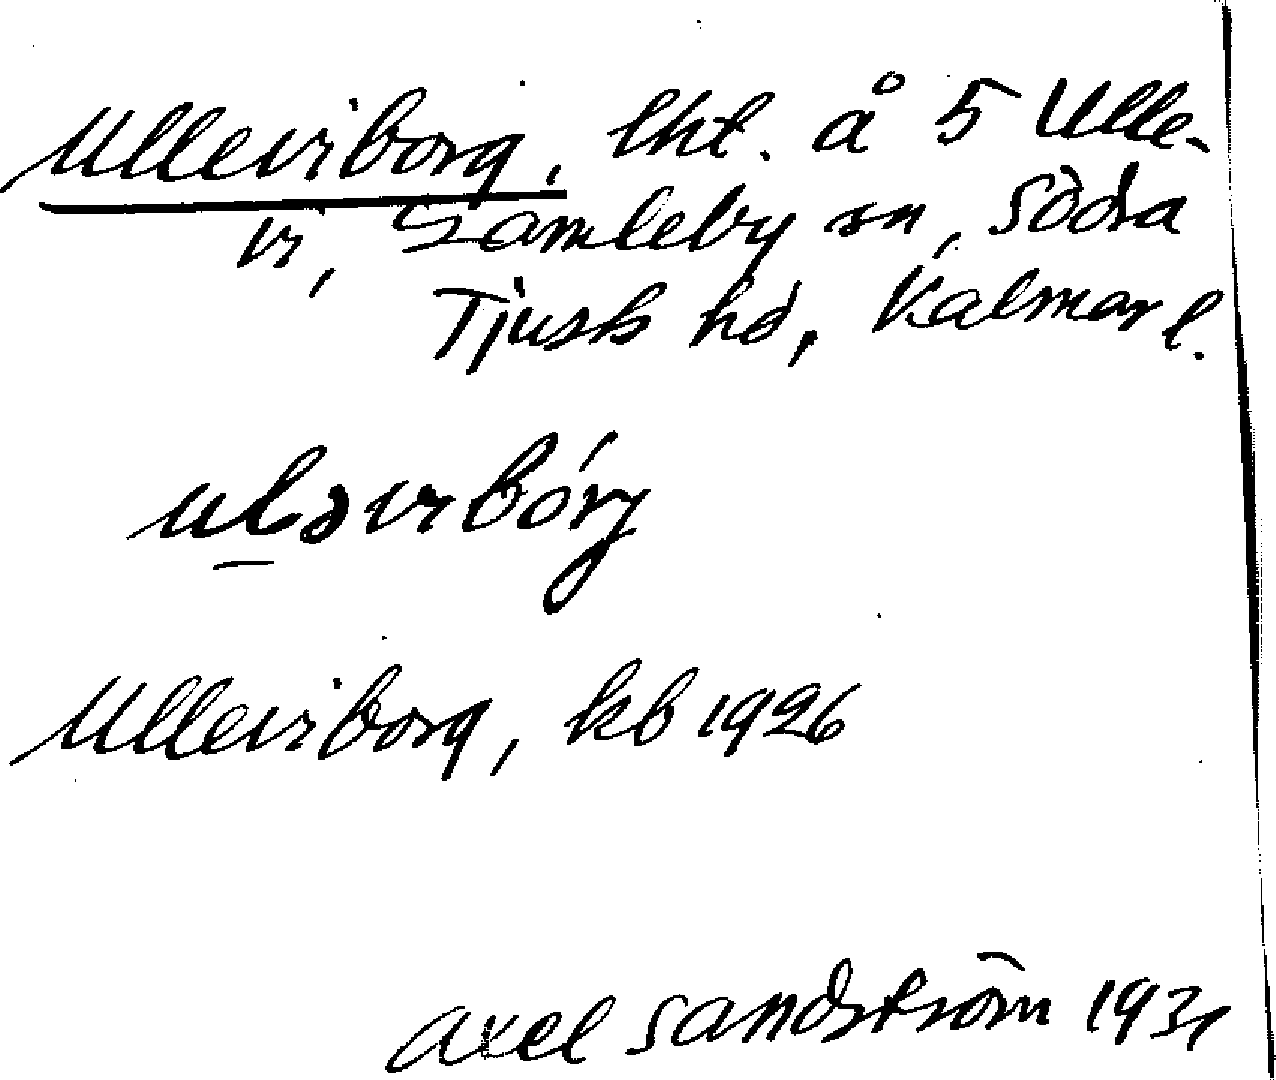 Ulleviborg, lht. å 5 Ulle-
vi, Gamleby sn, Södra
Tjusts hd, Kalmar l.
Ulleviborg, kb 1926
Axel Sandström 1931